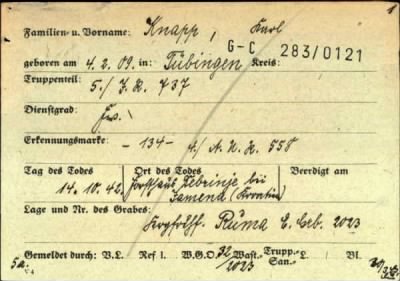 Familien- u. Vorname: Knapp, Karl
G-C 283/0121
geboren am 4.2.09. in: Tübingen Kreis:
Truppenteil: 5./J.R. 737
Dienstgrad:
Erkennungsmarke: -134- 4/ 558
Tag des Todes Ort des Todes Beerdigt am
14.10.42. Forsthaus bei
(Kroatien)
Lage und Nr. des Grabes:
Ruma E. Grb. 2023
Gemeldet durch: V.L. Ref l. W.G.O. 32/2023 Wast.- Trupp.- L. / Bl.
5a. V 4 San.-